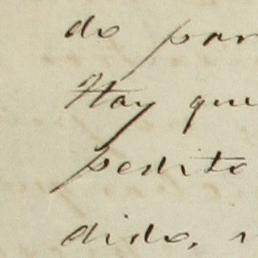 do par
Hay que
pedito
dido,